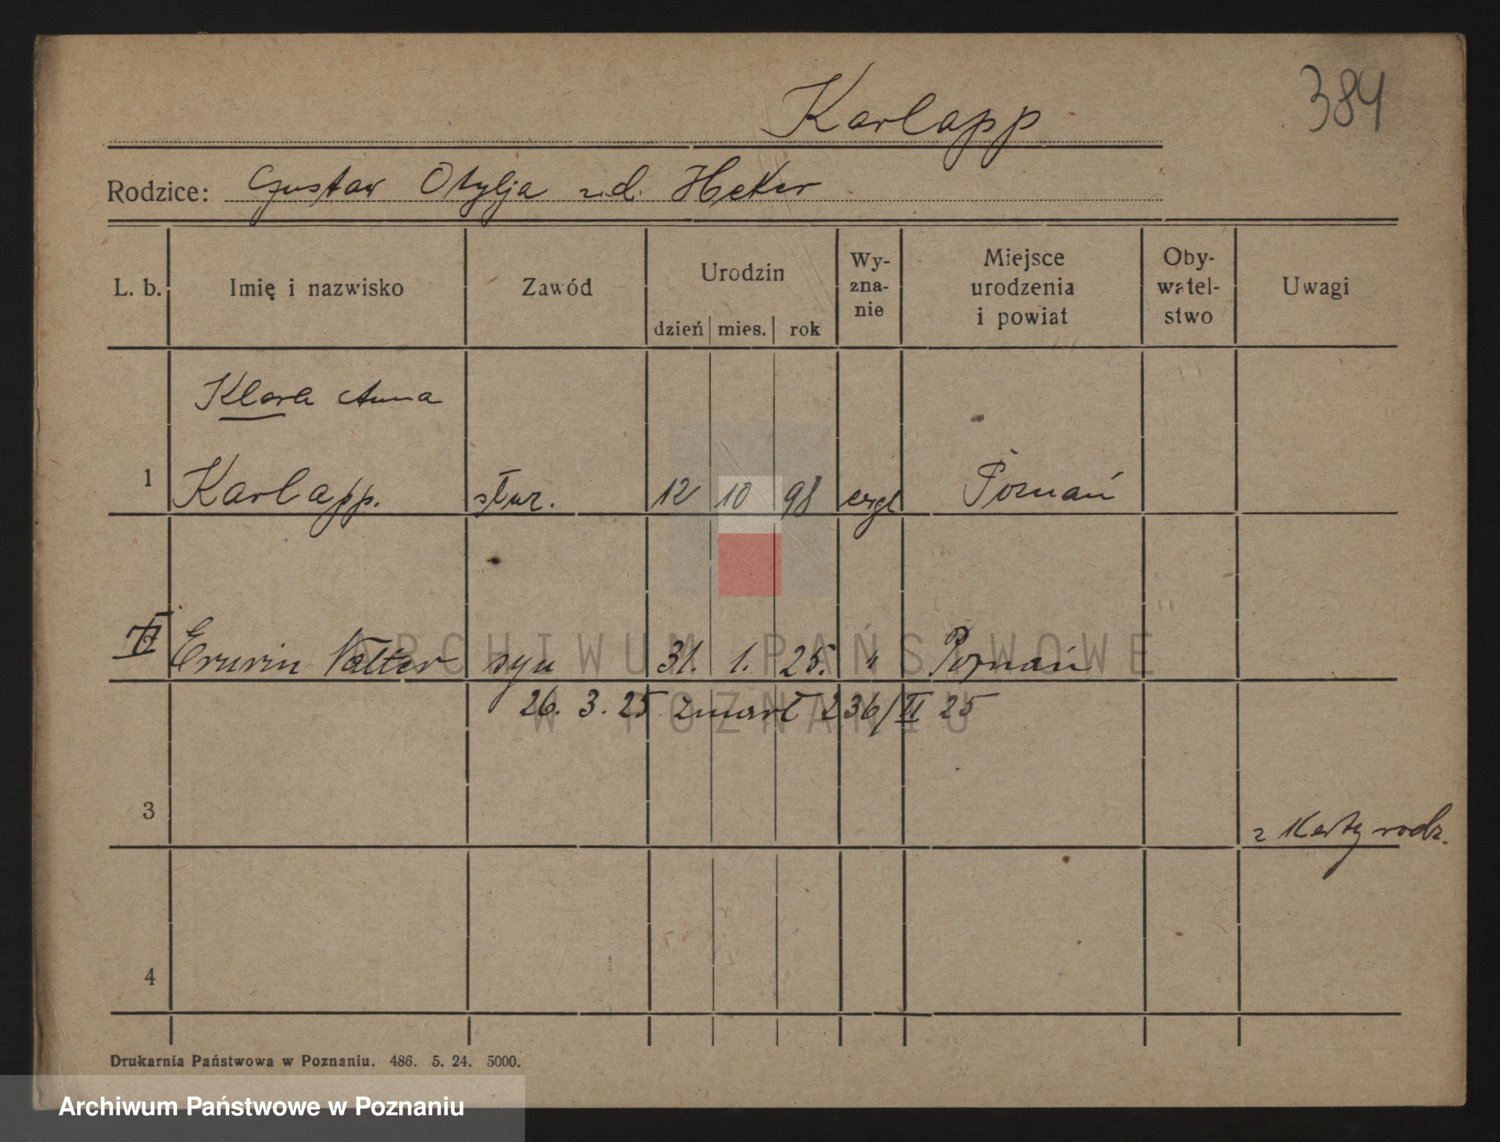 384
Karlapp
Rodzice: Gustaw Otylja z d. Heker
L. b. Imię i nazwisko Zawód Urodzin dzień mies. rok Wy-zna-nie Miejsce urodzenia i powiat Oby-watel-stwo Uwagi
Klara Anna
1 Karlapp. służ. 12 10 98 ewgl Poznań
II Erwin Walter syn 31. 1. 25. " Poznań
26. 3. 25 zmarł 236/II 25
3
z karty rodz.
4
Drukarnia Państwowa w Poznaniu. 486. 5. 24. 5000.
ARCHIWUM PAŃSTWOWE
W POZNANIU
Archiwum Państwowe w Poznaniu